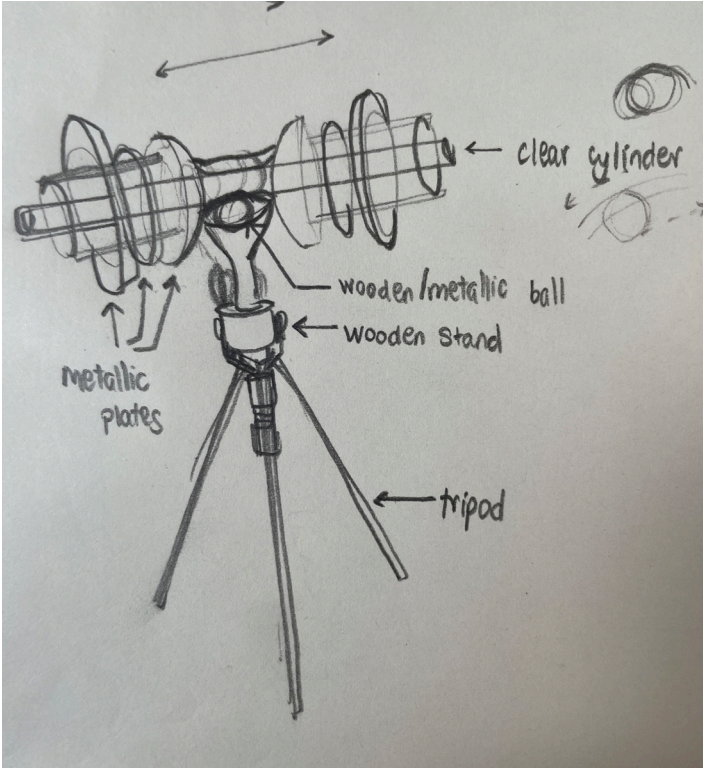 clear cylinder
wooden/metallic ball
wooden stand
metallic
plates
tripod